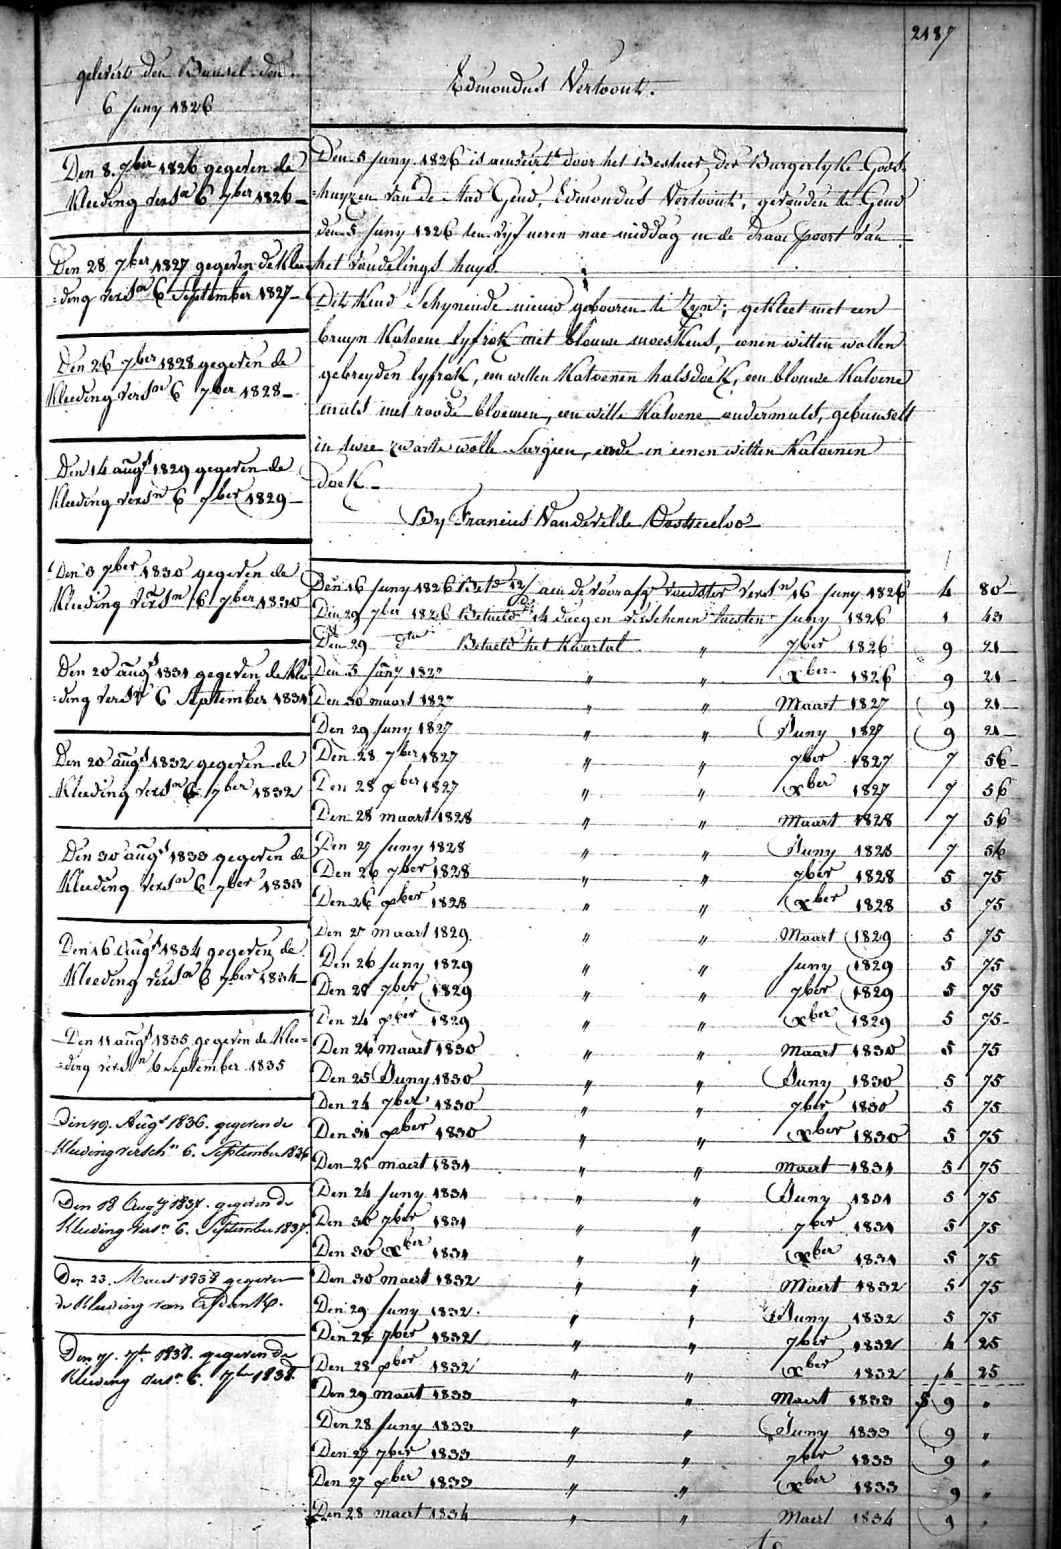 2187
gelevert den Bunsel den
6 Juny 1826
Den 8. 7ber 1826 gegeven de
Kleeding versn 6 7ber 1826
Den 28 7ber 1827 gegeven de Klee
=ding versn 6 September 1827
Den 26 7ber 1828 gegeven de
Kleeding versn 6 7ber 1828
Den 14 augt 1829 gegeven de
Kleeding versn 6 7ber 1829
Den 3 7ber 1830 gegeven de
Kleeding versn 6 7ber 1830
Den 20 augt 1831 gegeven de Klee
=ding versn 6 September 1831
Den 20 augt 1832 gegeven de
Kleeding versn 6 7ber 1832
Den 30 augt 1833 gegeven de
Kleeding versn 6 7ber 1833
Den 16 augt 1834 gegeven de
Kleeding versn 6 7ber 1834
Den 11 augt 1835 gegeven de Klee=
=ding versn 6 September 1835
Den 19. Augt 1836. gegeven de
Kleeding versch.n 6. September 1836
Den 18 Aug 1837. gegeven de
Kleeding versn 6. September 1837.
Den 23. Maert 1838 gegeven
de Kleeding van
Den 7. 7br 1838. gegeven de
Kleeding versn 6. 7ber 1838.
Edmondus Vertoont.
Den 5 Juny 1826 is door het Bestuer der Burgerlyke Gods=
=huyzen van de Stad Gend, Edmondus Vertoont, gevonden te Gend
den 5 Juny 1826 ten vyf ueren nae middag in de draai poort van
het vondelings huys.
Dit Kind Schynende nieuw gebooren te Zyn; gekleet met een
bruyn Katoene lyfrok met blouwe moeskens, eenen witten wollen
gebreyden lyfrok, een witten Katoenen halsdoek, een blouwe Katoene
muts met roode bloemen, een witte Katoene ondermuts, gebunselt
in twee zwarte wolle Sargien, ende in eenen witten Katoenen
doek
By Francies Vandevelde Oostaecloo
Den 16 Juny 1826 Bet. 12/ aen de voedster versn 16 Juny 1826 4 80
Den 29 7ber 1826 Betaeld 14 daegen verschenen Juny 1826 1 43
Den 29 dto Betaeld het Kwartal " 7ber 1826 9 21
Den 5 Jany 1827 " " xber 1826 9 21
Den 30 maart 1827 " " Maart 1827 9 21
Den 29 Juny 1827 " " Juny 1827 9 21
Den 28 7ber 1827 " " 7ber 1827 7 56
Den 28 xber 1827 " " xber 1827 7 56
Den 28 maart 1828 " " Maart 1828 7 56
Den 27 Juny 1828 " " Juny 1828 7 56
Den 26 7ber 1828 " " 7ber 1828 5 75
Den 26 xber 1828 " " xber 1828 5 75
Den 27 Maart 1829 " " Maart 1829 5 75
Den 26 Juny 1829 " " Juny 1829 5 75
Den 28 7ber 1829 " " 7ber 1829 5 75
Den 24 xber 1829 " " xber 1829 5 75
Den 26 Maart 1830 " " Maart 1830 5 75
Den 25 Juny 1830 " " Juny 1830 5 75
Den 24 7ber 1830 " " 7ber 1830 5 75
Den 31 xber 1830 " " xber 1830 5 75
Den 25 maert 1831 " " Maert 1831 5 75
Den 24 Juny 1831 " " Juny 1831 5 75
Den 30 7ber 1831 " " 7ber 1831 5 75
Den 30 xber 1831 " " xber 1831 5 75
Den 30 maert 1832 " " Maert 1832 5 75
Den 29 Juny 1832 " " Juny 1832 5 75
Den 28 7ber 1832 " " 7ber 1832 4 25
Den 28 xber 1832 " " xber 1832 4 25
Den 29 maert 1833 " " Maert 1833 9 "
Den 28 Juny 1833 " " Juny 1833 9 "
Den 27 7ber 1833 " " 7ber 1833 9 "
Den 27 xber 1833 " " xber 1833 9 "
Den 28 maert 1834 " " Maert 1834 9 "